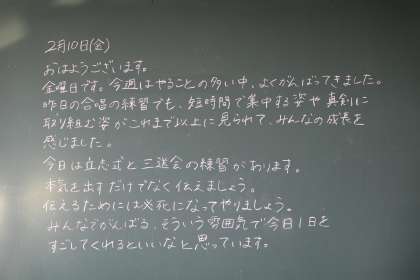 2月10日(金)
おはようございます。
金曜日です。今週はやることの多い中、よくがんばってきました。
昨日の合唱の練習でも、短時間で集中する姿や真剣に
取り組む姿がこれまで以上に見られて、みんなの成長を
感じました。
今日は立志式と三送会の練習があります。
本気を出すだけでなく伝えましょう。
伝えるためには必死になってやりましょう。
みんなでがんばる、そういう雰囲気で今日1日を
すごしてくれるといいなと思っています。